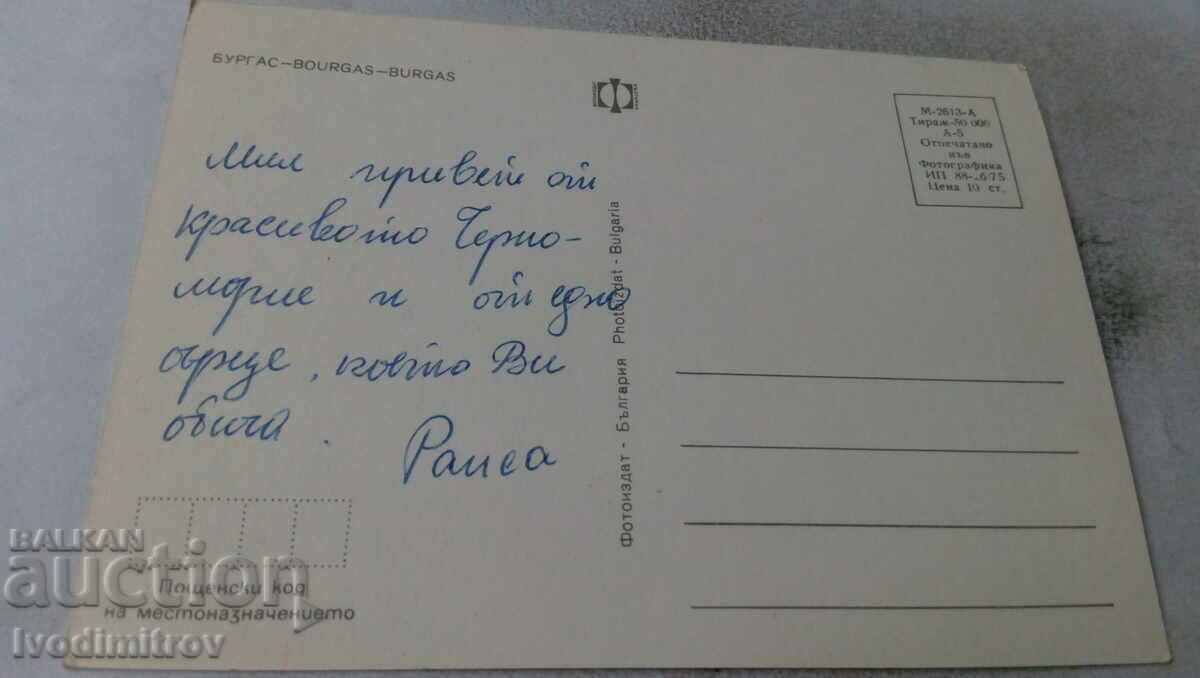 БУРГАС–BOURGAS–BURGAS
М-2613-А
Тираж-50 000
А-5
Отпечатано
във
Фотографика
ИП 88-.6/75
Цена 10 ст.
Мил привет от
красивото Черно-
морие и от едно
сърце, което Ви
обича.
Раиса
Фотоиздат - България Photoizdat - Bulgaria
Пощенски код
на местоназначението
BALKAN
auction
Ivodimitrov